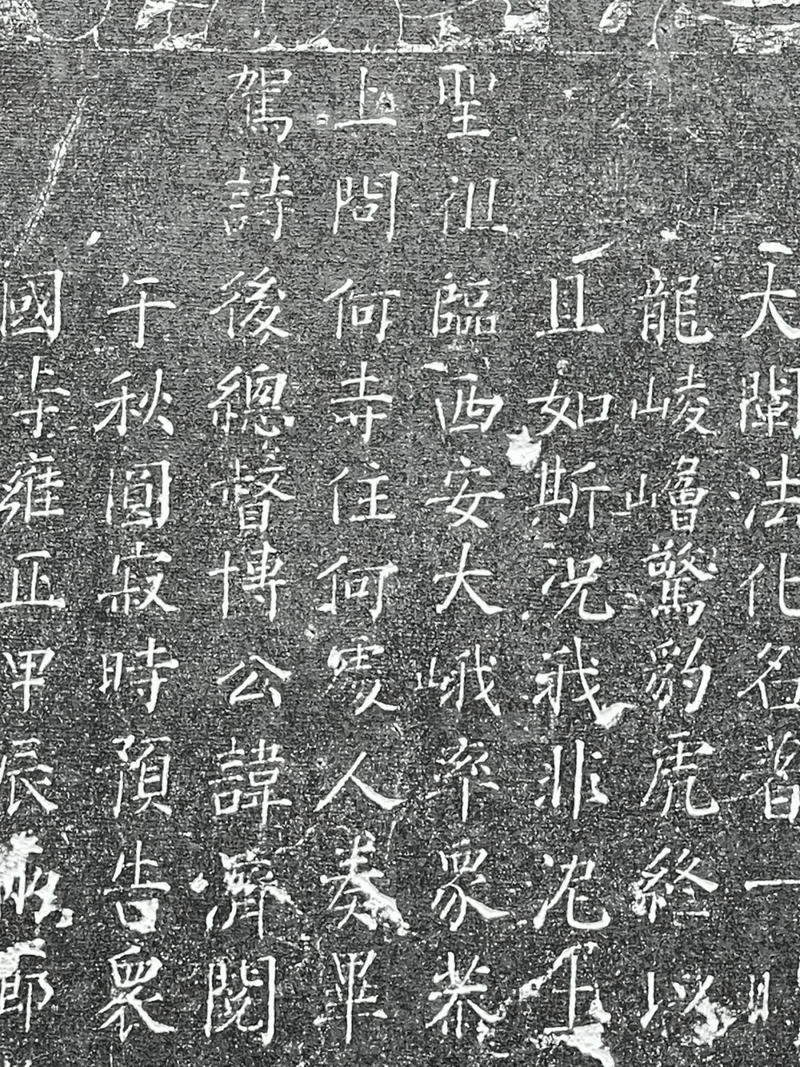 大闡法化名著一時
龍崚嶒驚豹虎終以
且如斯況我非沈
聖祖臨西安大峨率眾恭
上問何寺住何處人奏畢
駕詩後總督博公諱濟閱
午秋圓寂時預告衆
國寺雍正甲辰